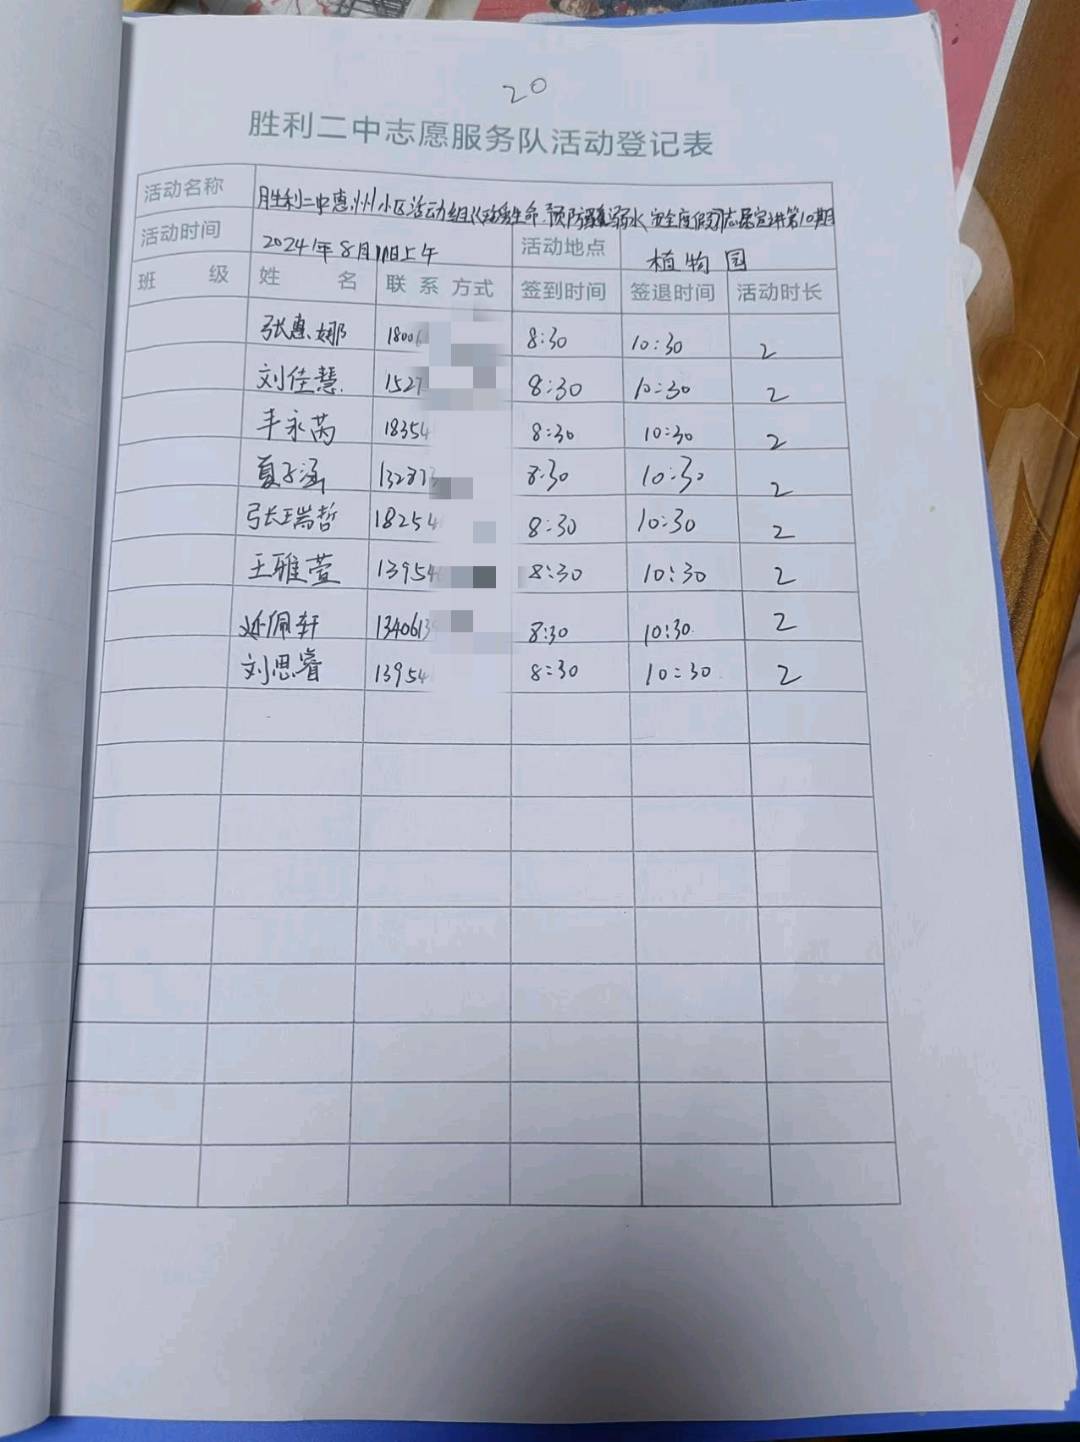 20
胜利二中志愿服务队活动登记表
活动名称 胜利二中惠州小区活动组《珍爱生命.预防溺水,安全度假》志愿宣讲第10期
活动时间 2024年8月 日上午 活动地点 植物园
班 级 姓 名 联系方式 签到时间 签退时间 活动时长
张惠娜 1800 8:30 10:30 2
刘佳慧 1527 8:30 10:30 2
丰永芮 18354 8:30 10:30 2
夏子涵 13287 8:30 10:30 2
张瑞哲 18254 8:30 10:30 2
王雅萱 1395 8:30 10:30 2
佩轩 134061 8:30 10:30 2
刘思睿 13954 8:30 10:30 2